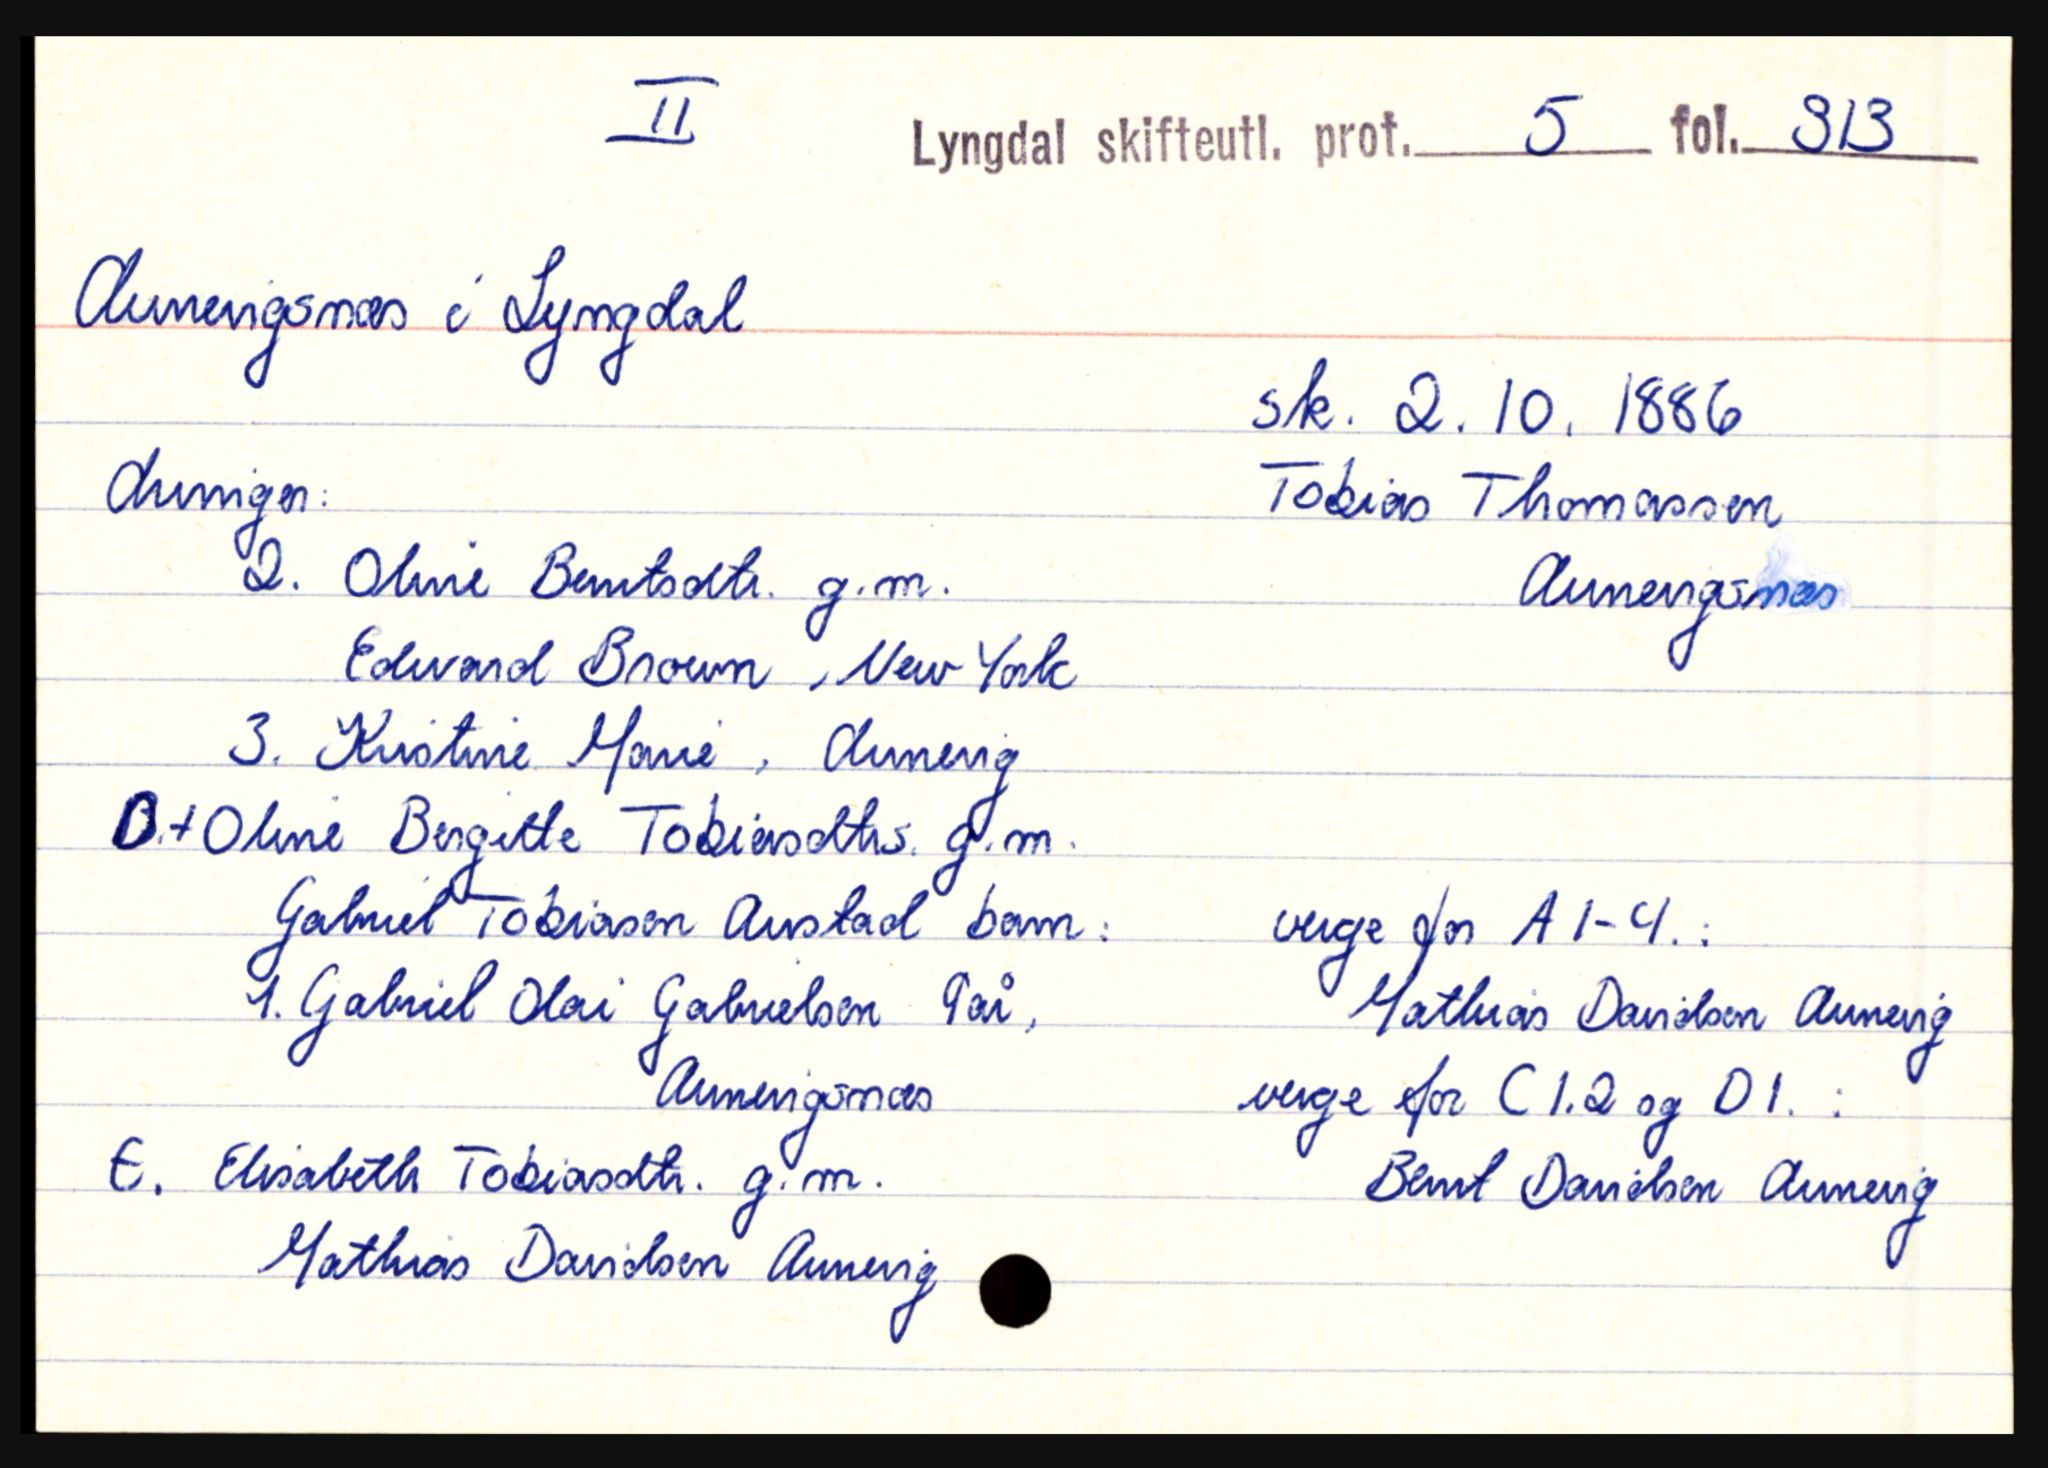 II
Lyngdal skifteutl. prot. 5 fol. 313
Aunevigsnæs i Lyngdal
sk. 2.10.1886
Tobias Thomassen
Aunevigsnæs
Arvinger:
2. Oline Berntsdtr. g.m.
Edward Brown, New York
3. Kristine Marie, Aunevig
D.+Oline Bergitte Tobiasdtrs. g.m.
Gabriel Tobiasen Austad barn:
1. Gabriel Olai Gabrielsen 9 år,
Aunevigsnæs
E. Elisabeth Tobiasdtr. g.m.
Mathias Davidsen Aunevig
verge for A 1-4.:
Mathias Davidsen Aunevig
verge for C 1.2 og D 1. :
Bernt Davidsen Aunevig